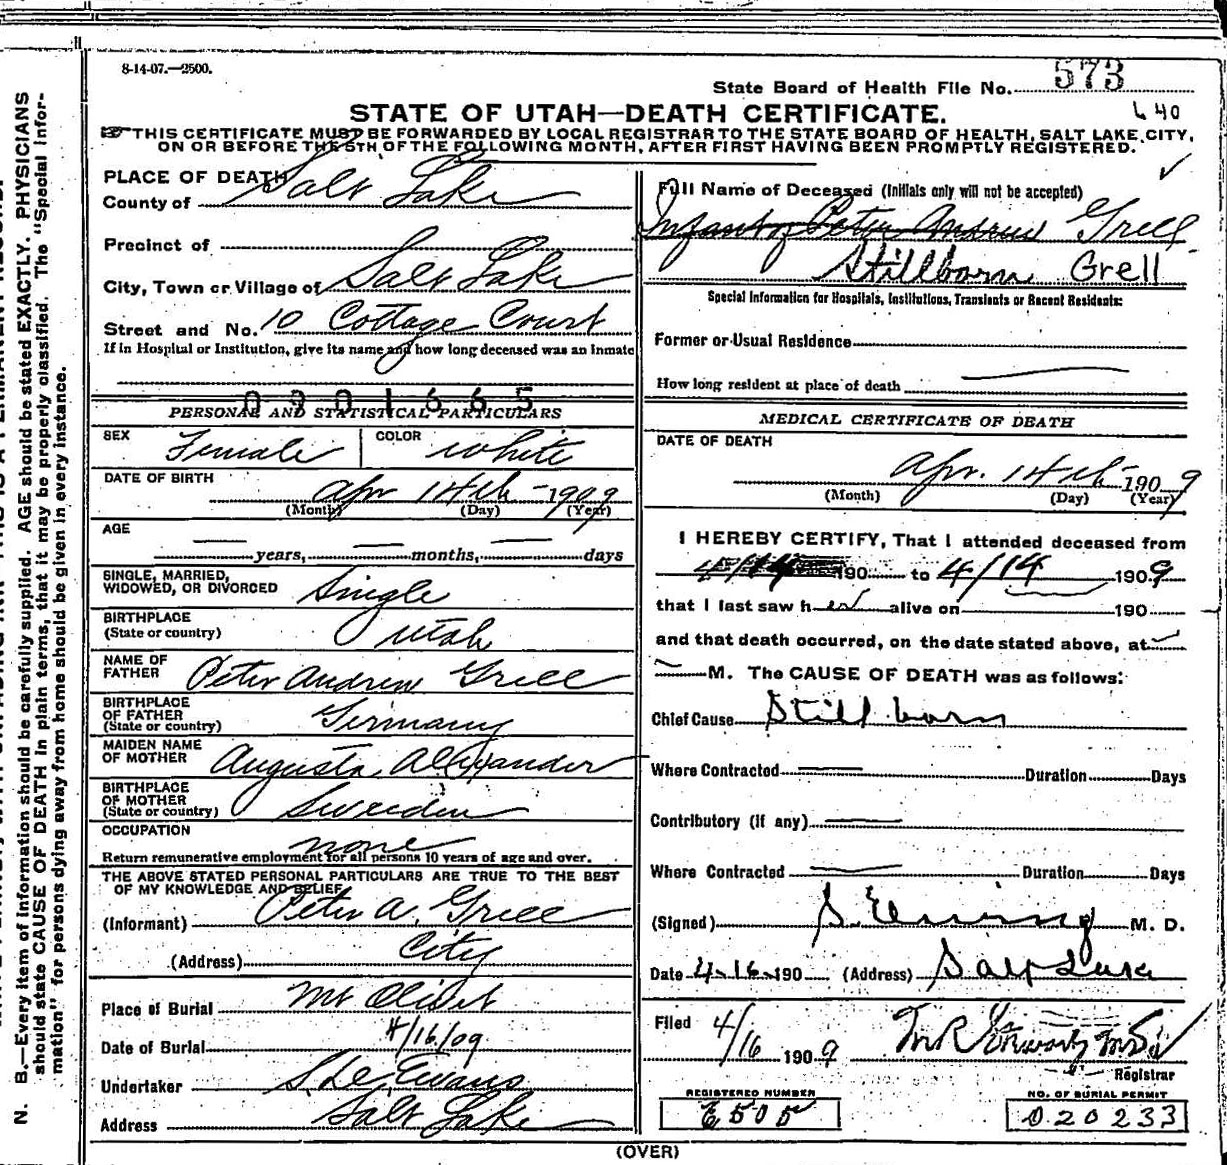 8-14-07.—2500.
State Board of Health File No. 573
STATE OF UTAH—DEATH CERTIFICATE.
L 40
THIS CERTIFICATE MUST BE FORWARDED BY LOCAL REGISTRAR TO THE STATE BOARD OF HEALTH, SALT LAKE CITY,
ON OR BEFORE THE 5TH OF THE FOLLOWING MONTH, AFTER FIRST HAVING BEEN PROMPTLY REGISTERED.
PLACE OF DEATH
County of Salt Lake
Precinct of
City, Town or Village of Salt Lake
Street and No. 10 Cottage Court
If in Hospital or Institution, give its name and how long deceased was an inmate
0301665
PERSONAL AND STATISTICAL PARTICULARS
SEX Female COLOR White
DATE OF BIRTH Apr 14th - 1909
(Month) (Day) (Year)
AGE
years, months, days
SINGLE, MARRIED,
WIDOWED, OR DIVORCED Single
BIRTHPLACE
(State or country) Utah
NAME OF
FATHER Peter Andrew Grell
BIRTHPLACE
OF FATHER
(State or country) Germany
MAIDEN NAME
OF MOTHER Augusta Alexander
BIRTHPLACE
OF MOTHER
(State or country) Sweden
OCCUPATION none
Return remunerative employment for all persons 10 years of age and over.
THE ABOVE STATED PERSONAL PARTICULARS ARE TRUE TO THE BEST
OF MY KNOWLEDGE AND BELIEF
(Informant) Peter A. Grell
(Address) City
Place of Burial Mt Olivet
Date of Burial 4/16/09
Undertaker Evans
Address Salt Lake
Full Name of Deceased (Initials only will not be accepted)
Infant of Peter Andrew Grell
Stillborn Grell
Special Information for Hospitals, Institutions, Transients or Recent Residents:
Former or Usual Residence
How long resident at place of death
MEDICAL CERTIFICATE OF DEATH
DATE OF DEATH
Apr. 14th - 1909
(Month) (Day) (Year)
I HEREBY CERTIFY, That I attended deceased from
4/14 190 to 4/14 1909
that I last saw her alive on 190
and that death occurred, on the date stated above, at
M. The CAUSE OF DEATH was as follows:
Chief Cause Still born
Where Contracted Duration Days
Contributory (if any)
Where Contracted Duration Days
(Signed) S. Ewing M. D.
Date 4-16-190 (Address) Salt Lake
Filed 4/16 1909
Registrar
REGISTERED NUMBER
E505
NO. OF BURIAL PERMIT
020233
(OVER)
N. B.—Every item of information should be carefully supplied. AGE should be stated EXACTLY. PHYSICIANS
should state CAUSE OF DEATH in plain terms, that it may be properly classified. The "Special Infor-
mation" for persons dying away from home should be given in every instance.